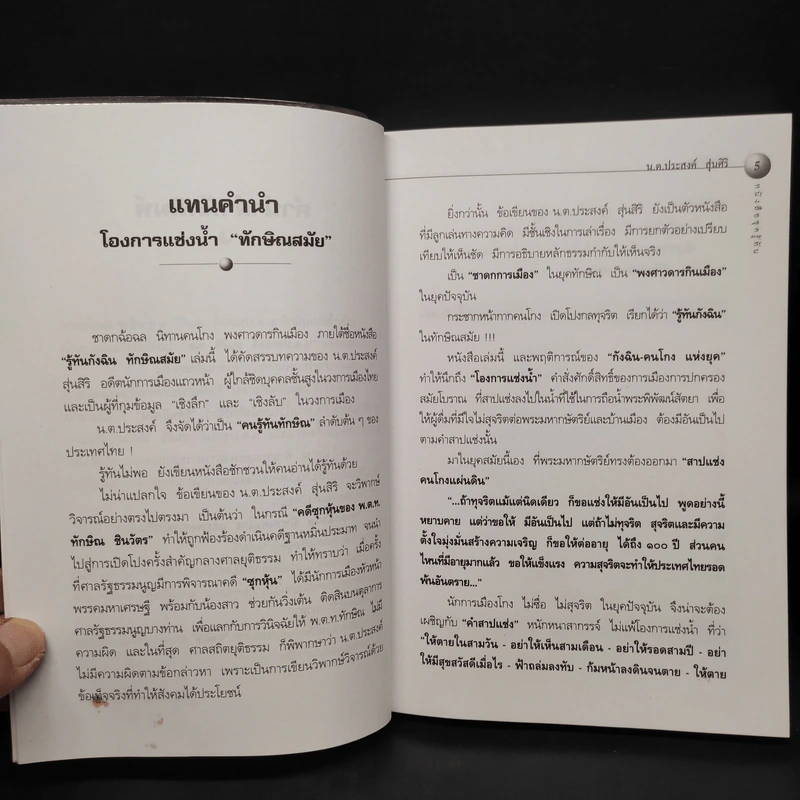 แทนคำนำ
โองการแช่งน้ำ “ทักษิณสมัย”
ชาดกฉ้อฉล นิทานคนโกง พงศาวดารกินเมือง ภายใต้ชื่อหนังสือ
“รู้ทันกังฉิน ทักษิณสมัย” เล่มนี้ ได้คัดสรรบทความของ น.ต.ประสงค์
สุ่นสิริ อดีตนักการเมืองแถวหน้า ผู้ใกล้ชิดบุคคลชั้นสูงในวงการเมืองไทย
และเป็นผู้ที่กุมข้อมูล “เชิงลึก” และ “เชิงลับ” ในวงการเมือง
น.ต.ประสงค์ จึงจัดได้ว่าเป็น “คนรู้ทันทักษิณ” ลำดับต้น ๆ ของ
ประเทศไทย !
รู้ทันไม่พอ ยังเขียนหนังสือชักชวนให้คนอ่านได้รู้ทันด้วย
ไม่น่าแปลกใจ ข้อเขียนของ น.ต.ประสงค์ สุ่นสิริ จะวิพากษ์
วิจารณ์อย่างตรงไปตรงมา เป็นต้นว่า ในกรณี “คดีซุกหุ้นของ พ.ต.ท.
ทักษิณ ชินวัตร” ทำให้ถูกฟ้องร้องดำเนินคดีฐานหมิ่นประมาท จนนำ
ไปสู่การเปิดโปงครั้งสำคัญกลางศาลยุติธรรม ทำให้ทราบว่า เมื่อครั้ง
ที่ศาลรัฐธรรมนูญมีการพิจารณาคดี “ซุกหุ้น” ได้มีนักการเมืองหัวหน้า
พรรคมหาเศรษฐี พร้อมกับน้องสาว ช่วยกันวิ่งเต้น ติดสินบนตุลาการ
ศาลรัฐธรรมนูญบางท่าน เพื่อแลกกับการวินิจฉัยให้ พ.ต.ท.ทักษิณ ไม่มี
ความผิด และในที่สุด ศาลสถิตยุติธรรม ก็พิพากษาว่า น.ต.ประสงค์
ไม่มีความผิดตามข้อกล่าวหา เพราะเป็นการเขียนวิพากษ์วิจารณ์ด้วย
ข้อเท็จจริงที่ทำให้สังคมได้ประโยชน์
น.ต.ประสงค์ สุ่นศิริ 5
ยิ่งกว่านั้น ข้อเขียนของ น.ต.ประสงค์ สุ่นสิริ ยังเป็นตัวหนังสือ
ที่มีลูกเล่นทางความคิด มีชั้นเชิงในการเล่าเรื่อง มีการยกตัวอย่างเปรียบ
เทียบให้เห็นชัด มีการอธิบายหลักธรรมกำกับให้เห็นจริง
เป็น “ชาดกการเมือง” ในยุคทักษิณ เป็น “พงศาวดารกินเมือง”
ในยุคปัจจุบัน
กระชากหน้ากากคนโกง เปิดโปงกลทุจริต เรียกได้ว่า “รู้ทันกังฉิน”
ในทักษิณสมัย !!!
หนังสือเล่มนี้ และพฤติการณ์ของ “กังฉิน-คนโกง แห่งยุค”
ทำให้นึกถึง “โองการแช่งน้ำ” คำสั่งศักดิ์สิทธิ์ของการเมืองการปกครอง
สมัยโบราณ ที่สาปแช่งลงไปในน้ำที่ใช้ในการถือน้ำพระพิพัฒน์สัตยา เพื่อ
ให้ผู้ดื่มที่มีใจไม่สุจริตต่อพระมหากษัตริย์และบ้านเมือง ต้องมีอันเป็นไป
ตามคำสาปแช่งนั้น
มาในยุคสมัยนี้เอง ที่พระมหากษัตริย์ทรงต้องออกมา “สาปแช่ง
คนโกงแผ่นดิน”
“...ถ้าทุจริตแม้แต่นิดเดียว ก็ขอแช่งให้มีอันเป็นไป พูดอย่างนี้
หยาบคาย แต่ว่าขอให้ มีอันเป็นไป แต่ถ้าไม่ทุจริต สุจริตและมีความ
ตั้งใจมุ่งมั่นสร้างความเจริญ ก็ขอให้ต่ออายุ ได้ถึง ๑๐๐ ปี ส่วนคน
ไหนที่มีอายุมากแล้ว ขอให้แข็งแรง ความสุจริตจะทำให้ประเทศไทยรอด
พ้นอันตราย...”
นักการเมืองโกง ไม่ซื่อ ไม่สุจริต ในยุคปัจจุบัน จึงน่าจะต้อง
เผชิญกับ “คำสาปแช่ง” หนักหนาสากรรจ์ ไม่แพ้โองการแช่งน้ำ ที่ว่า
“ให้ตายในสามวัน - อย่าให้เห็นสามเดือน - อย่าให้รอดสามปี - อย่า
ให้มีสุขสวัสดีเมื่อไร - ฟ้าถล่มลงทับ - ก้มหน้าลงดินจนตาย - ให้ตาย